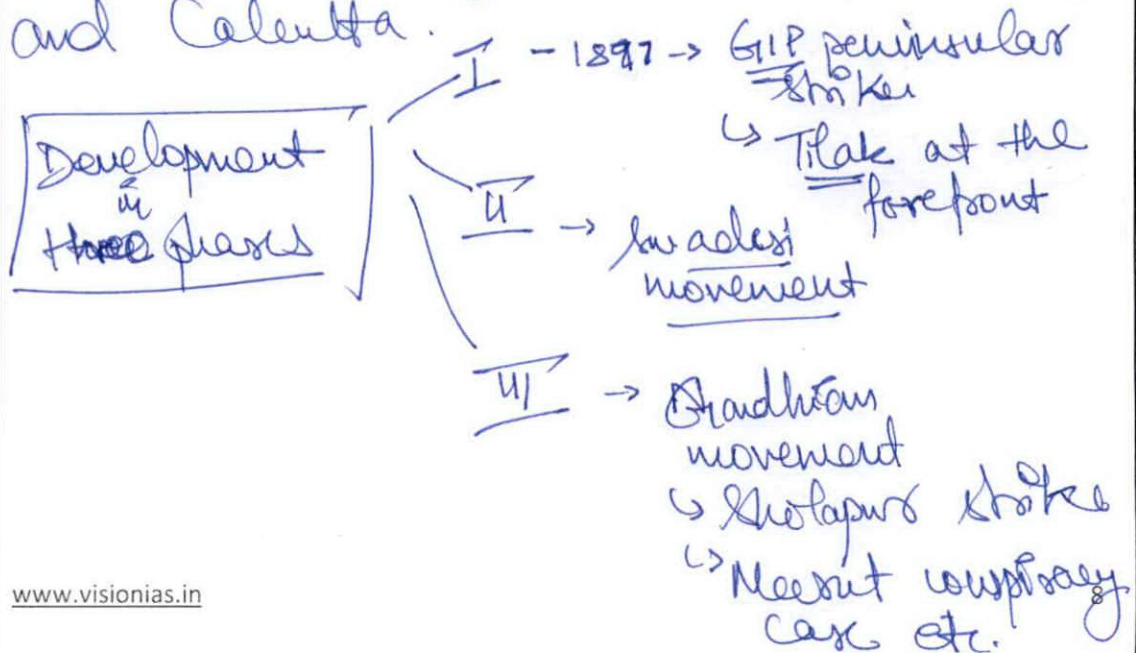 and Calcutta.
Development
in
three phases
I - 1897 -> GIP peninsular
strike
↳ Tilak at the
forefront
II -> Swadesi
movement
III -> Gandhian
movement
↳ Sholapur strike
↳ Meerut conspiracy
case etc.
www.visionias.in
8